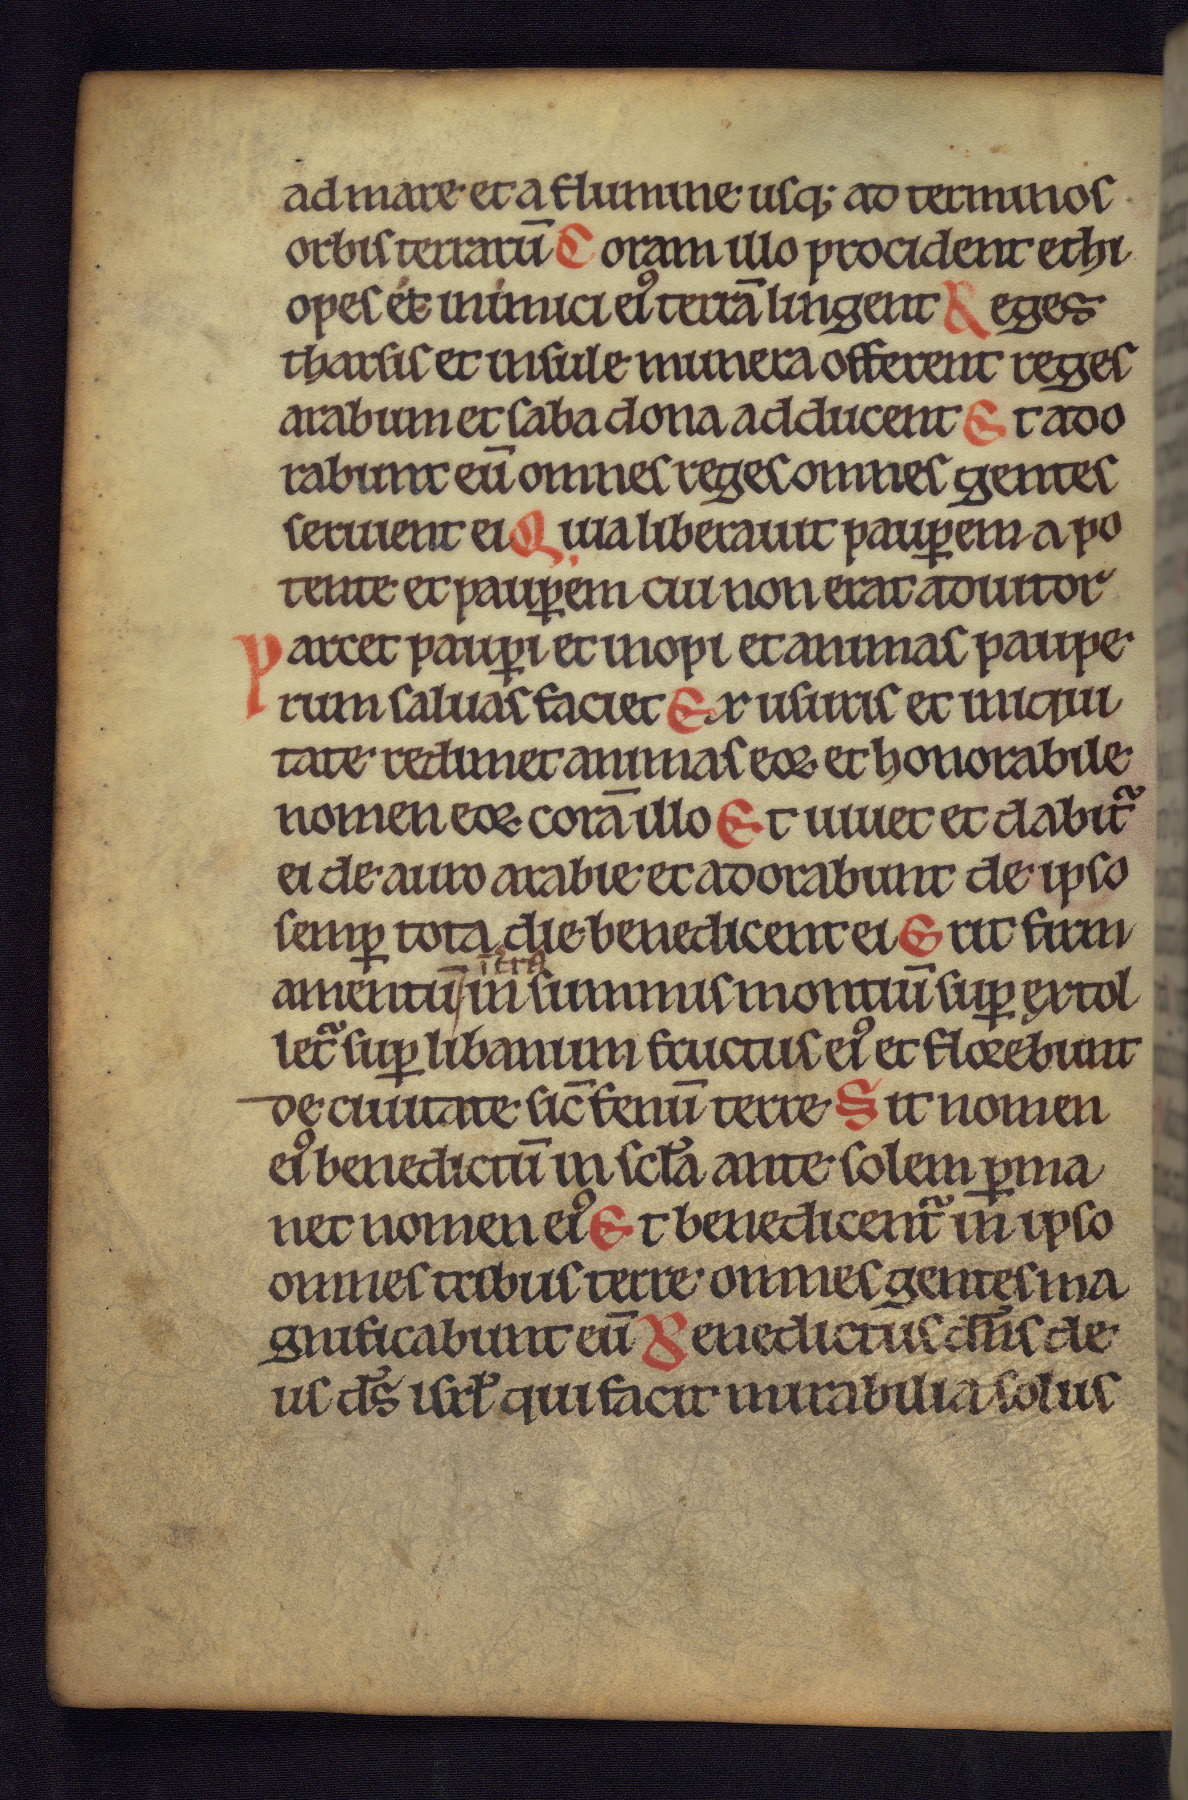 ad mare et a flumine usq; ad terminos
orbis terrarū Coram illo procident ethi
opes et inimici ei⁹ terrā lingent Reges
tharsis et insule munera offerent reges
arabum et saba dona adducent Et ado
rabunt eū omnes reges omnes gentes
seruient ei Quia liberauit pauꝑem a po
tente et pauꝑem cui non erat adiutor
Parcet pauꝑi et inopi et animas paupe
rum saluas faciet Ex usuris et iniqui
tate redimet animas eoꝝ et honorabile
nomen eoꝝ corā illo Et uiuet et dabit᷑
ei de auro arabie et adorabunt de ipso
semꝑ tota die benedicent ei Erit firm
amentū / ī tr̄a in summis montiū suꝑ extol
let᷑ suꝑ libanum fructus ei⁹ et florebunt
de ciuitate sic̄ fenū terre Sit nomen
ei⁹ benedictū in scl̄a ante solem ꝑma
net nomen ei⁹ Et benedicent᷑ in ipso
omnes tribus terre omnes gentes ma
gnificabunt eū Benedictus dn̄s de
us ds̄ isrl̄ qui facit mirabilia solus